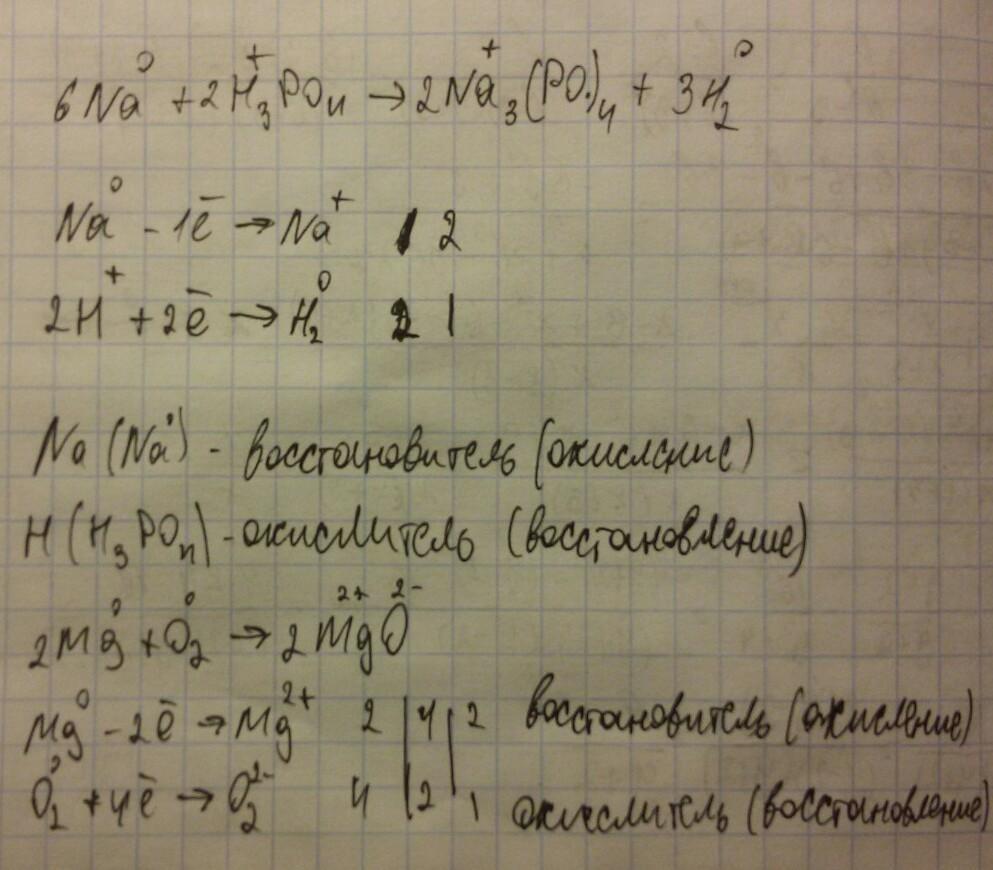 6Na⁰ + 2H⁺₃PO₄ → 2Na⁺₃(PO.)₄ + 3H₂⁰
Na⁰ - 1ē → Na⁺ 1 2
2H⁺ + 2ē → H₂⁰ 2 1
Na (Na⁰) - восстановитель (окисление)
H (H₃PO₄) - окислитель (восстановление)
2Mg⁰ + O₂⁰ → 2Mg²⁺O²⁻
Mg⁰ - 2ē → Mg²⁺ 2 | 4 | 2 восстановитель (окисление)
O₂⁰ + 4ē → O₂²⁻ 4 | 2 | 1 окислитель (восстановление)